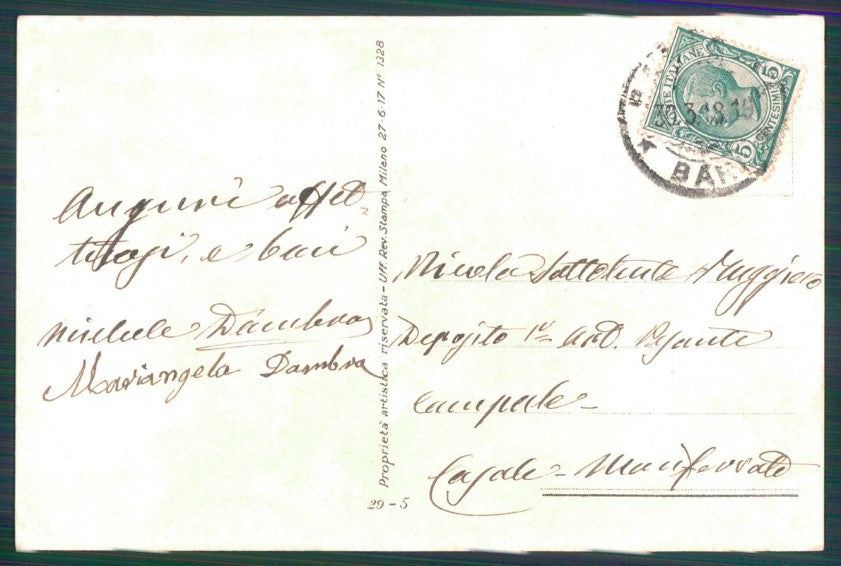 Auguri affet-
tuosi, e baci
Michele Dambra
Mariangela Dambra
Proprietà artistica riservata - Uff. Rev. Stampa Milano 27-6-17 Nº 1328
29-5
POSTE ITALIANE
5 CENTESIMI 5
BARI
Nicola Sottotenente Ruggiero
Deposito 1º Art. Pesante
Campale
Casale-Monferrato